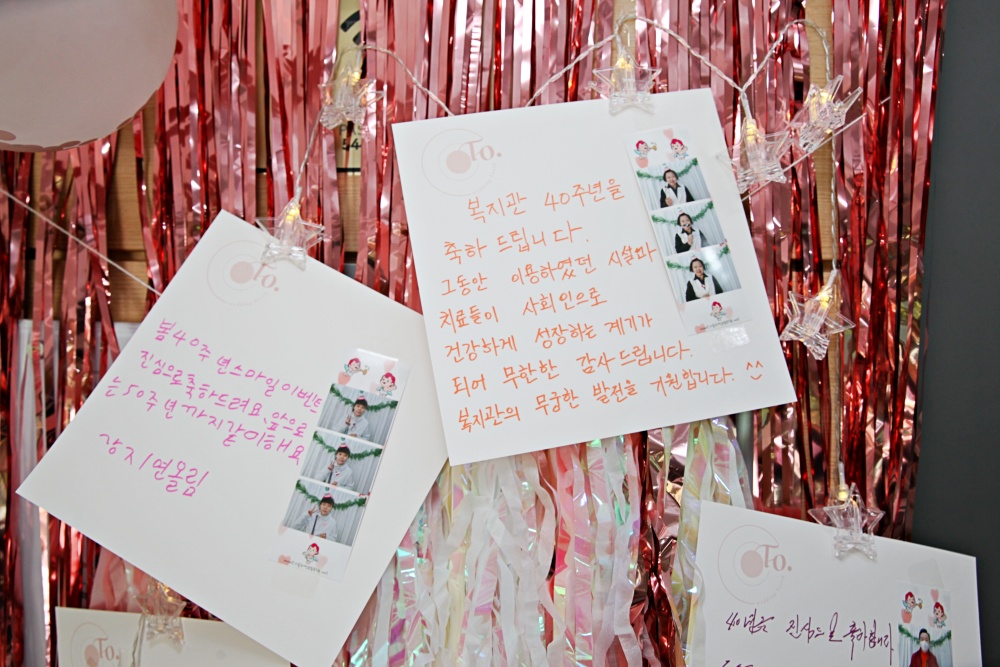 To.
복지관 40주년을
축하 드립니다.
그동안 이용하였던 시설과
치료들이 사회인으로
건강하게 성장하는 계기가
되어 무한한 감사드립니다.
복지관의 무궁한 발전을 기원합니다. ^^
To.
봄40주년스마일이벤트
진심으로축하드려요 앞으로
는50주년까지같이해요
강지연올림
To.
40년을 진심으로 축하합니다
To.